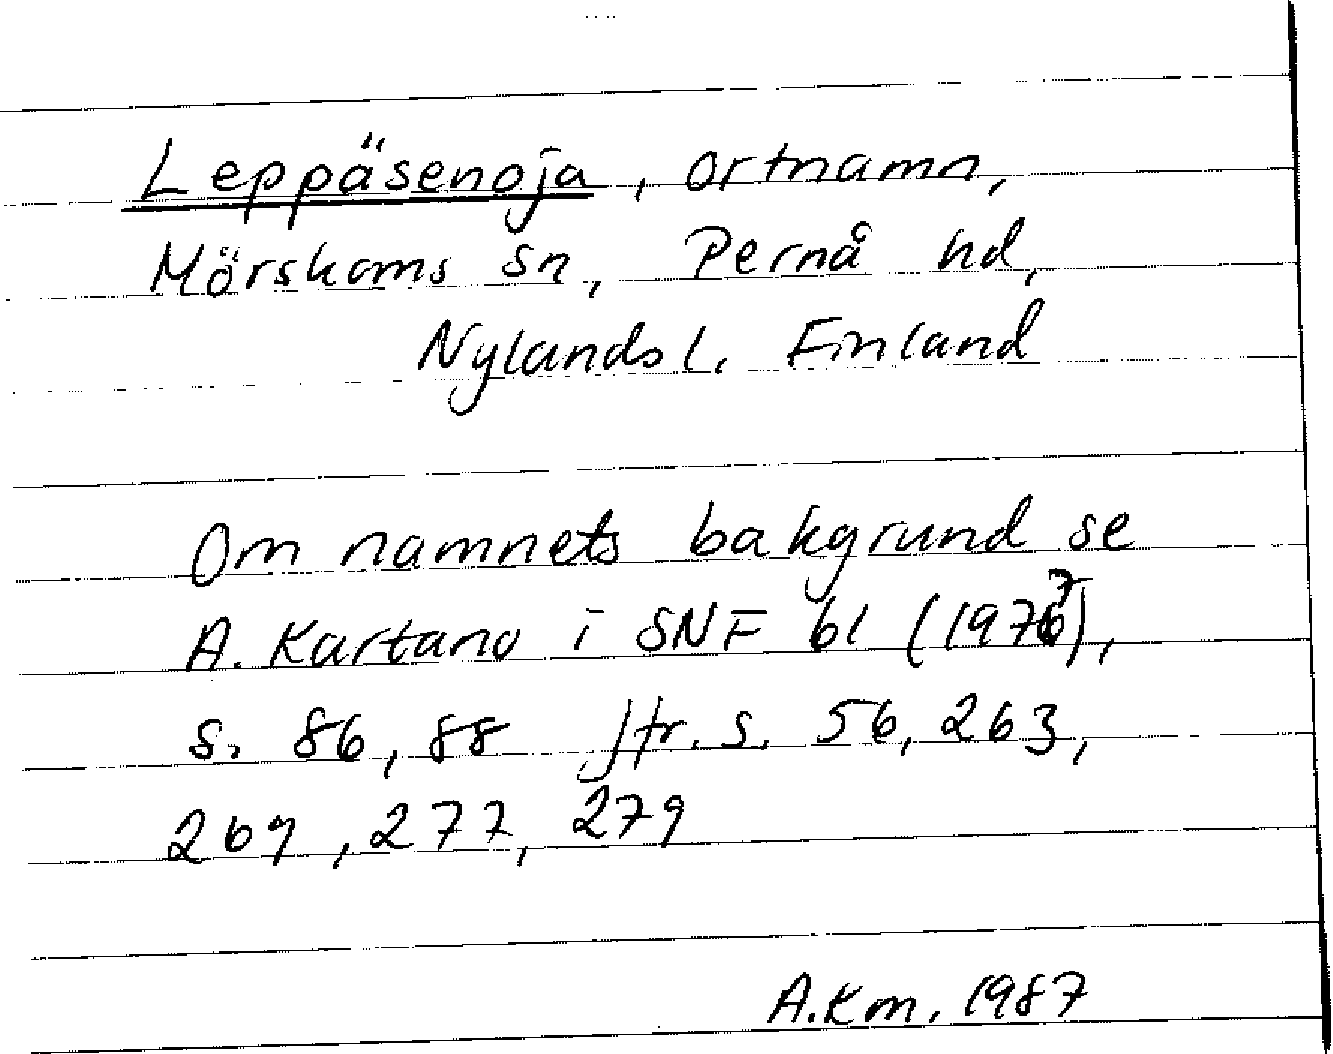 Leppäsenoja, ortnamn,
Mörskoms sn, Pernå hd,
Nylands l. Finland
Om namnets bakgrund se
A. Kartano i SNF 61 (1977),
s. 86, 88 Jfr. s. 56, 263,
269, 277, 279
A.Km. 1987